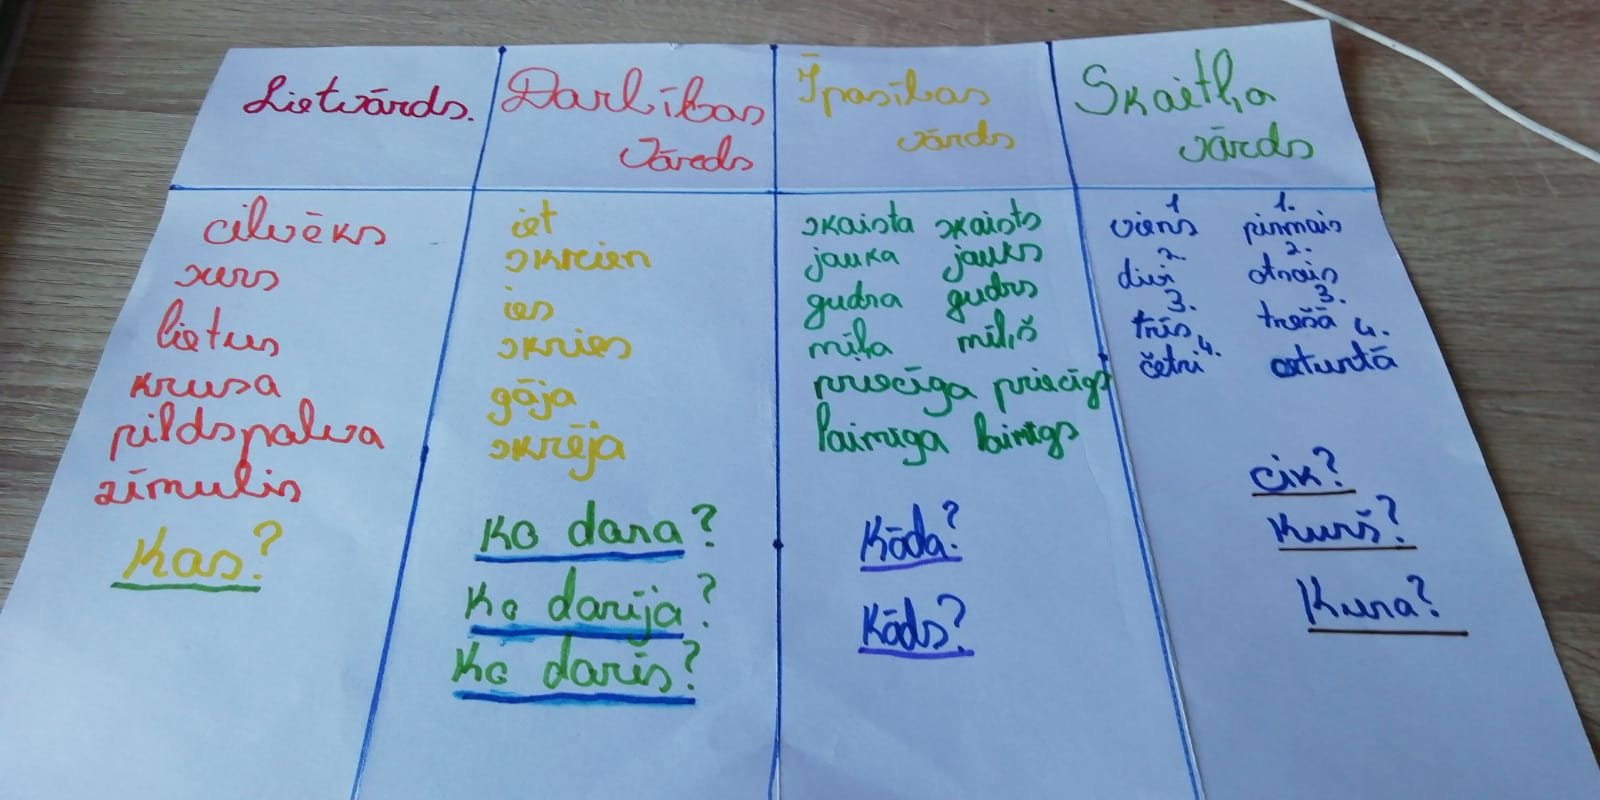 Lietvārds.
cilvēks
suns
lietus
krusa
pildspalva
zīmulis
Kas?
Darbības
Vārds
iet
skrien
ies
skries
gāja
skrēja
Ko dara?
Ko darīja?
Ko darīs?
Īpašības
vārds
skaista skaists
jauka jauks
gudra gudrs
mīļa mīļš
priecīga priecīgs
laimīga laimīgs
Kāda?
Kāds?
Skaitļa
vārds
1 1.
viens pirmais
2. 2.
divi otrais
3. 3.
trīs trešā
4. 4.
četri ceturtā
cik?
Kurš?
Kura?